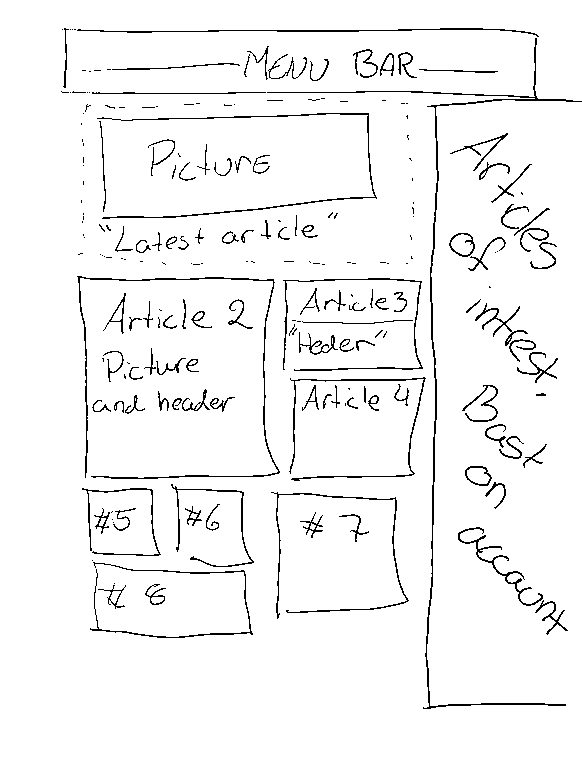 MENU BAR
Picture
"Latest article"
Article 2
Picture
and header
Article 3
"Heder"
Article 4
#5
#6
# 7
# 8
Articles
of
intrest.
Bast
on
account